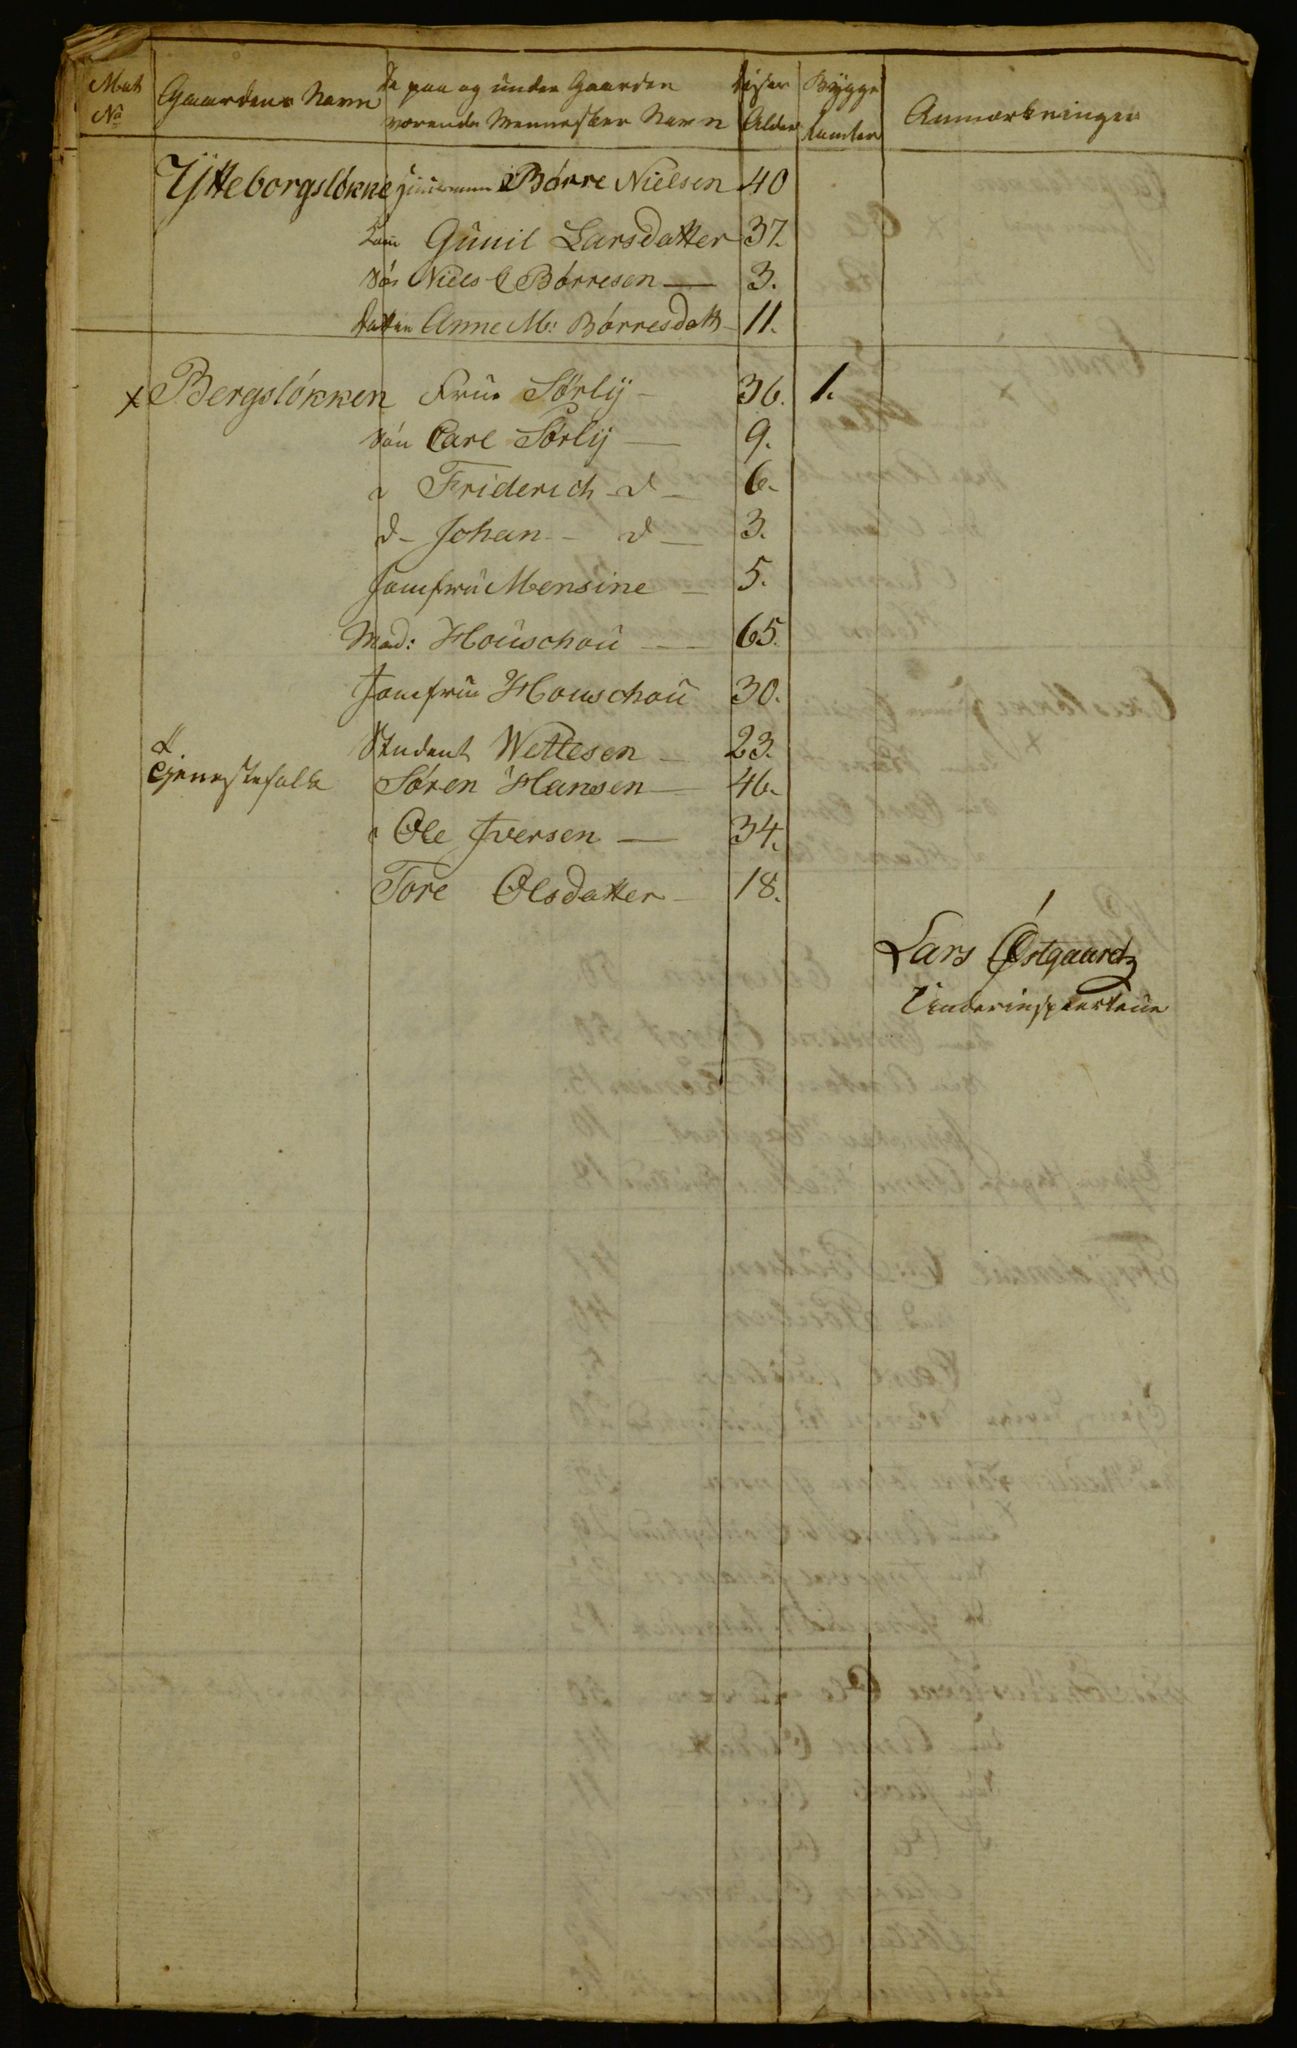 Mat No Gaardens Navn De paa og under Gaarden værende Mennesker Navn Disses Alder Bygge Anmærkninger
Ytteborgsløkke Børre Nielsen 40
Gunil Larsdatter 37.
Søn Niels Børresen — 3.
Datter Anne M: Børresdatt 11.
x Bergsløkken Frue Sørly - 36. 1.
Søn Carl Sørly — 9.
Friderich d — 6.
d - Johan - d — 3.
Jomfru Mensine — 5.
Mad: Houschou — 65.
Jomfru Houschou 30.
Student Wettesen — 23.
Tjenestefolk Søren Hansen — 46.
Ole Iversen — 34.
Tore Olsdatter — 18.
Lars Østgaard
Underinspecteur